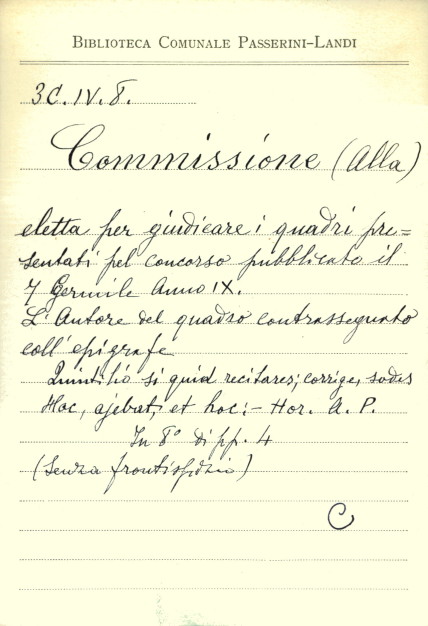 BIBLIOTECA COMUNALE PASSERINI-LANDI
3C.IV.8.
Commissione (Alla)
eletta per giudicare i quadri pre=
sentati pel concorso pubblicato il
7 Germile Anno IX.
L'Autore del quadro contrassegnato
coll'epigrafe
Quintilio si quid recitares; corrige, sodes
Hoc, ajebat, et hoc:- Hor. A. P.
In 8° di pp. 4
(Senza frontispizio)
C